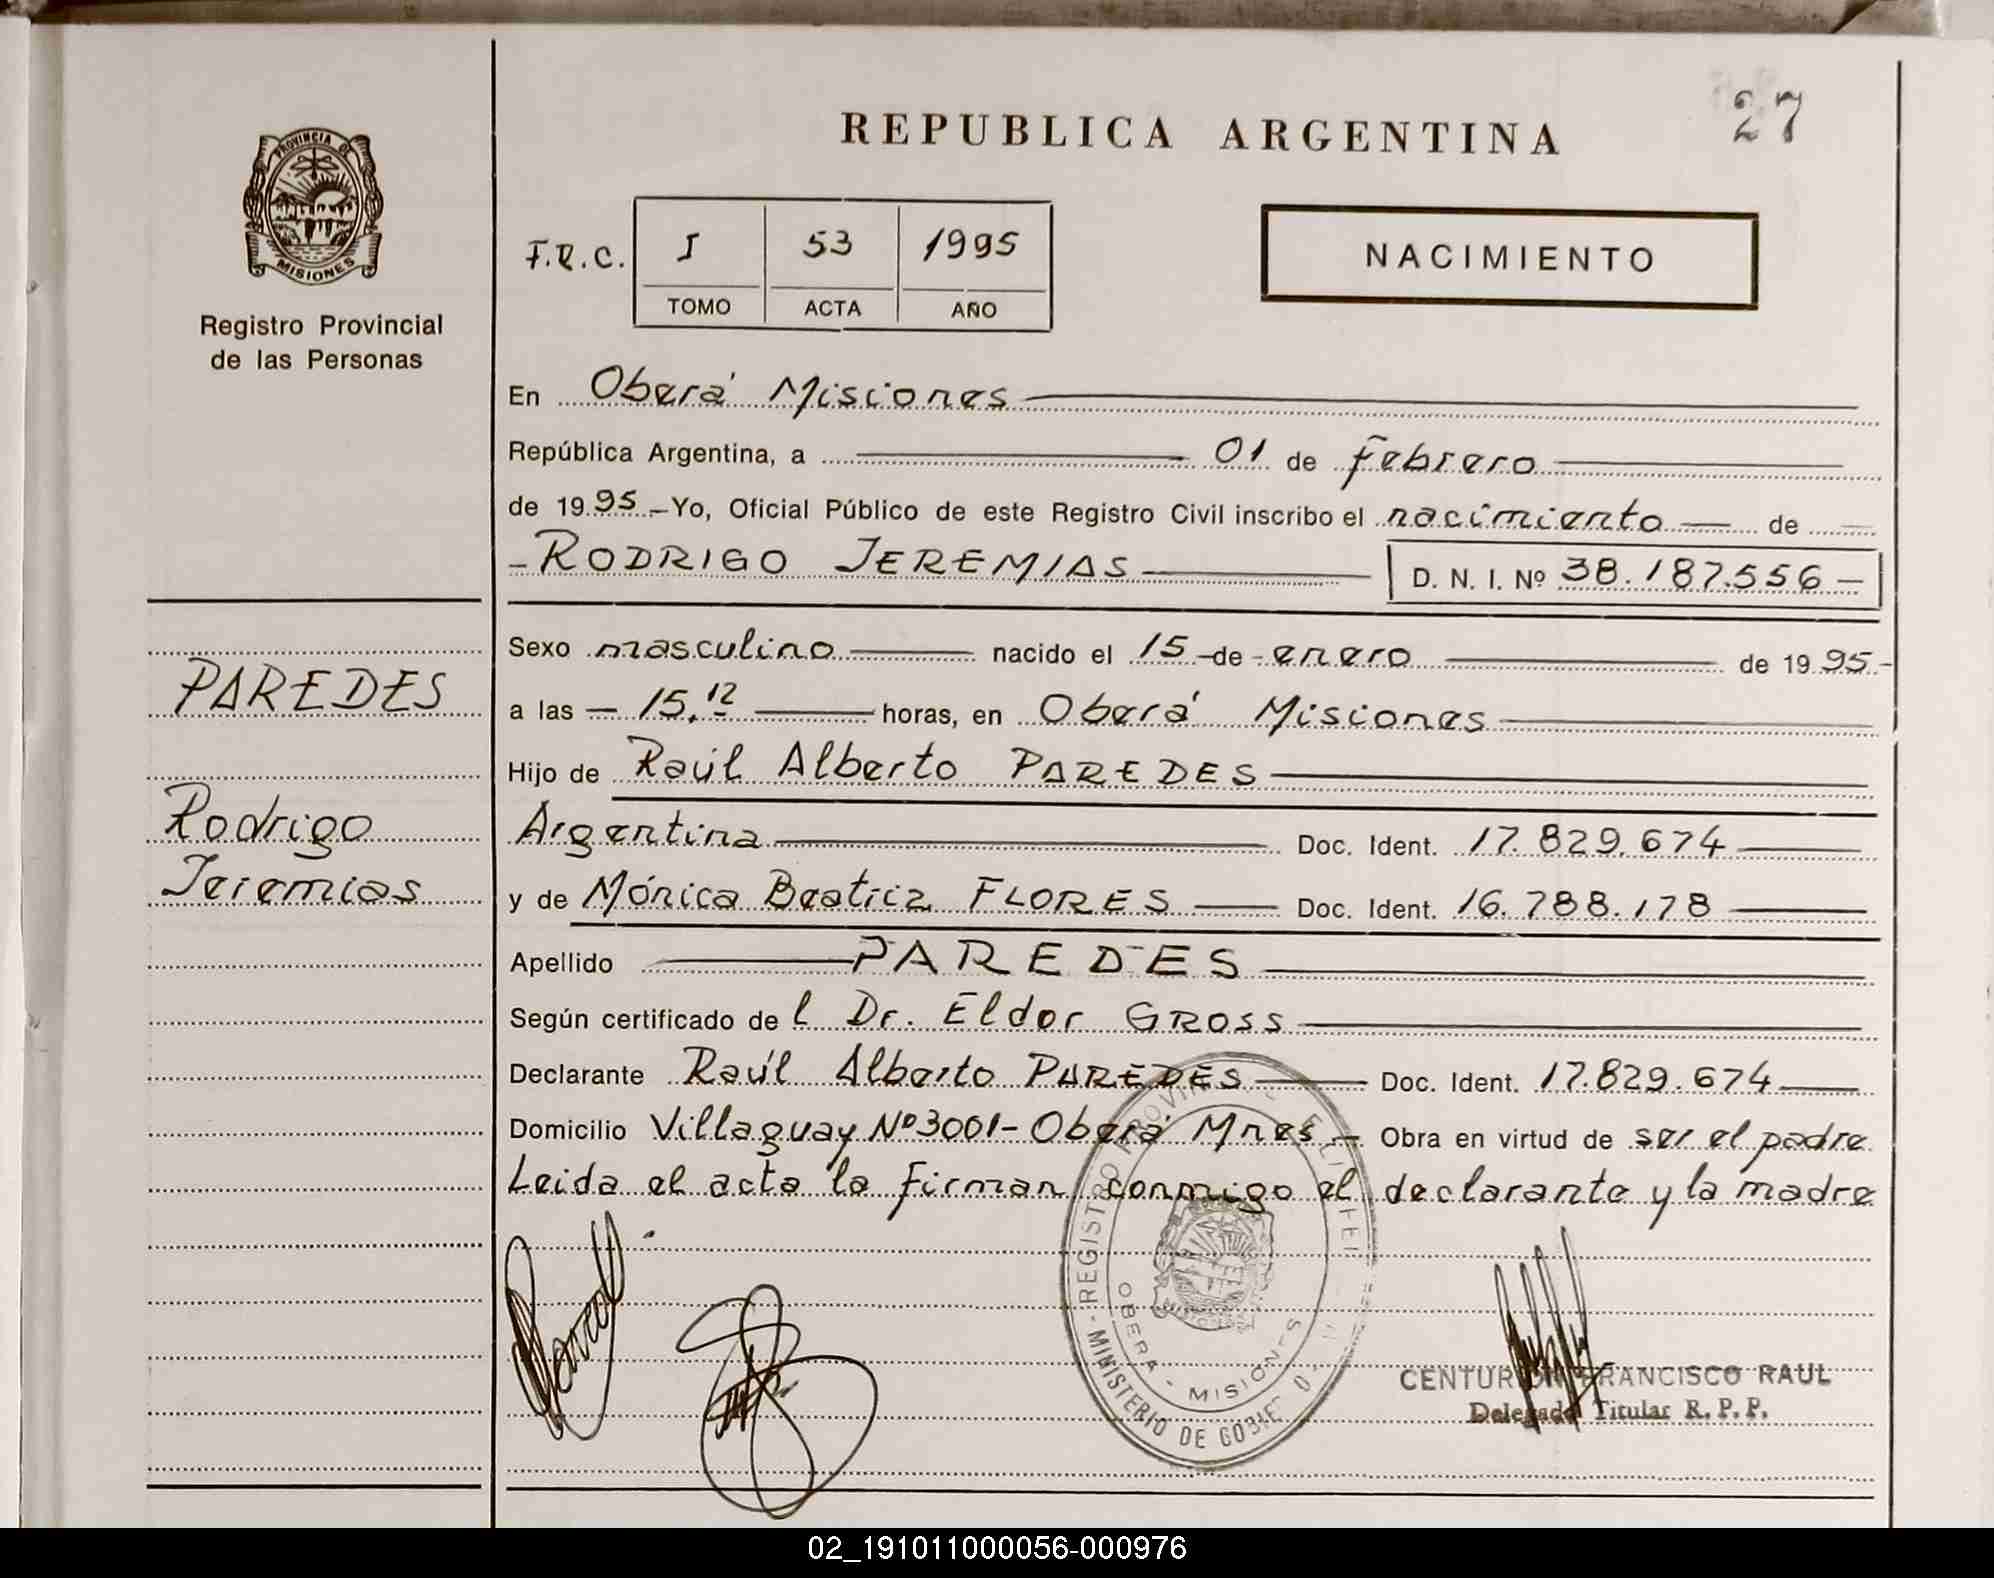 27
REPUBLICA ARGENTINA
PROVINCIA DE
MISIONES
Registro Provincial
de las Personas
F.R.C. I 53 1995
TOMO ACTA AÑO
NACIMIENTO
En Oberá Misiones
República Argentina, a 01 de Febrero
de 1995.- Yo, Oficial Público de este Registro Civil inscribo el nacimiento de
- RODRIGO JEREMIAS D. N. I. Nº 38.187.556 -
Sexo masculino nacido el 15 - de - enero de 1995 -
a las - 15.12 horas, en Oberá Misiones
Hijo de Raúl Alberto PAREDES
Argentina Doc. Ident. 17.829.674
y de Mónica Beatriz FLORES Doc. Ident. 16.788.178
Apellido PAREDES
Según certificado de l Dr. Eldor GROSS
Declarante Raúl Alberto PAREDES Doc. Ident. 17.829.674
Domicilio Villaguay Nº 3001 - Oberá Mnes - Obra en virtud de ser el padre
Leida el acta la firman conmigo el declarante y la madre
PAREDES
Rodrigo
Jeremias
REGISTRO
MINISTERIO DE
OBERA - MISIONES
CENTURION FRANCISCO RAUL
Delegado Titular R. P. P.
02_191011000056-000976